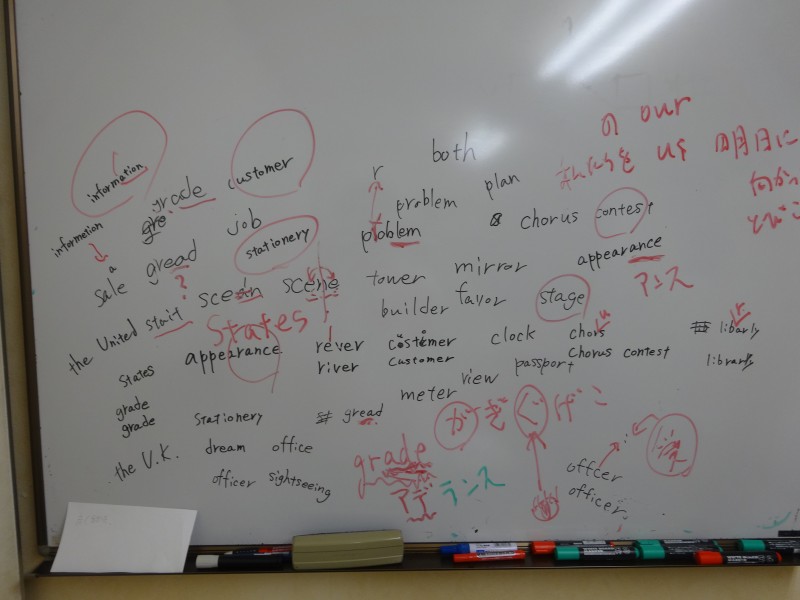 の our
r both
us 明日に
information grade customer
problem plan
何か
information gre job
problem chorus contest
a
sale gread stationery
?
tower mirror appearance
アンス
scean scene
builder favor stage
the United stait States
u r
appearance rever costimer clock chors libarly
States river customer chorus contest librarly
meter view passport
grade
grade stationery gread
がぎぐげご
the U.K. dream office
grade
officer sightseeing
アデ ランス
offcer
officer